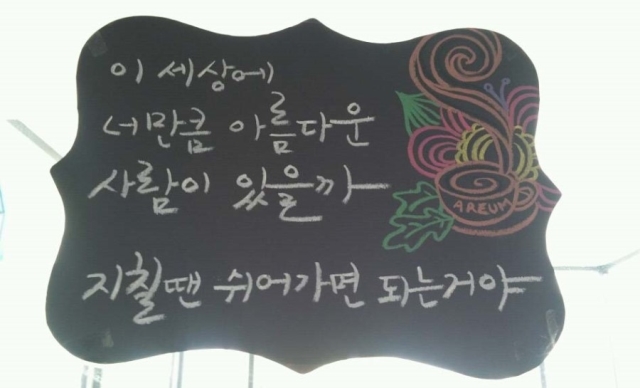 이 세상에
너만큼 아름다운
사람이 있을까
AREUM
지칠땐 쉬어가면 되는거야